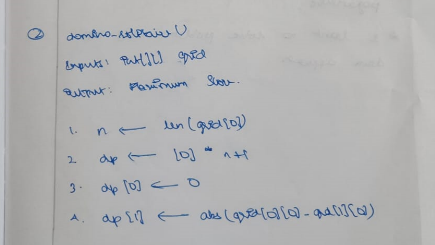 ② domino-solitaire ()
Inputs: int[][] grid
Output: Maximum Score.
1. n ← len(grid[0])
2 dp ← [0] * n+1
3. dp[0] ← 0
4. dp[1] ← abs(grid[0][0] - grid[1][0])